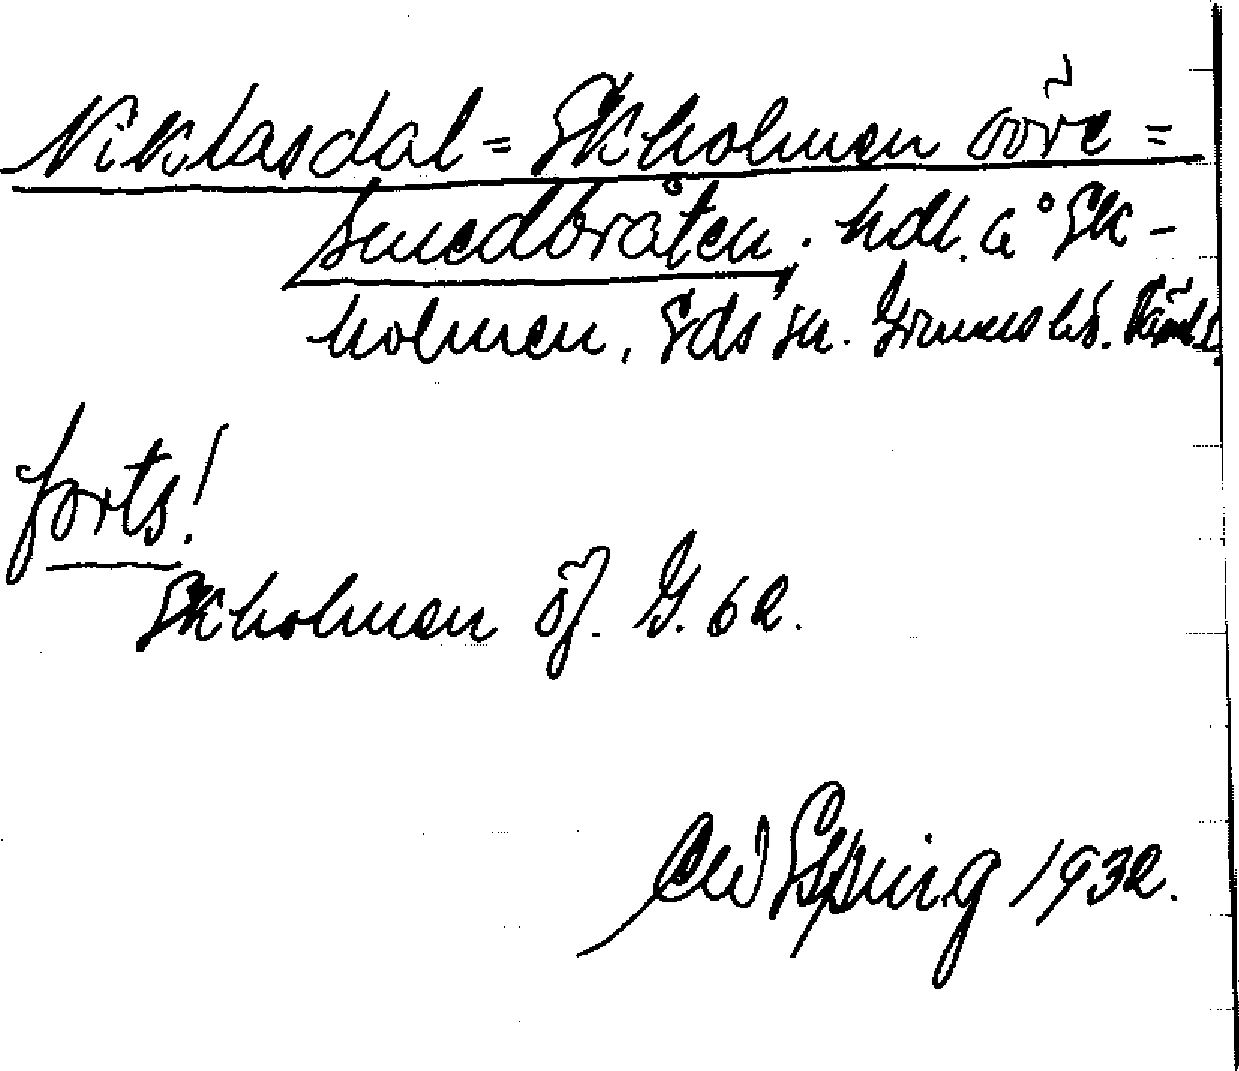 Niklasdal = Ekholmen övre =
Smedbråten. hdl. å Ek-
holmen, Eds sn. Grums hd. Värml.
forts!
Ekholmen öf. G. 62.
Elving 1932.